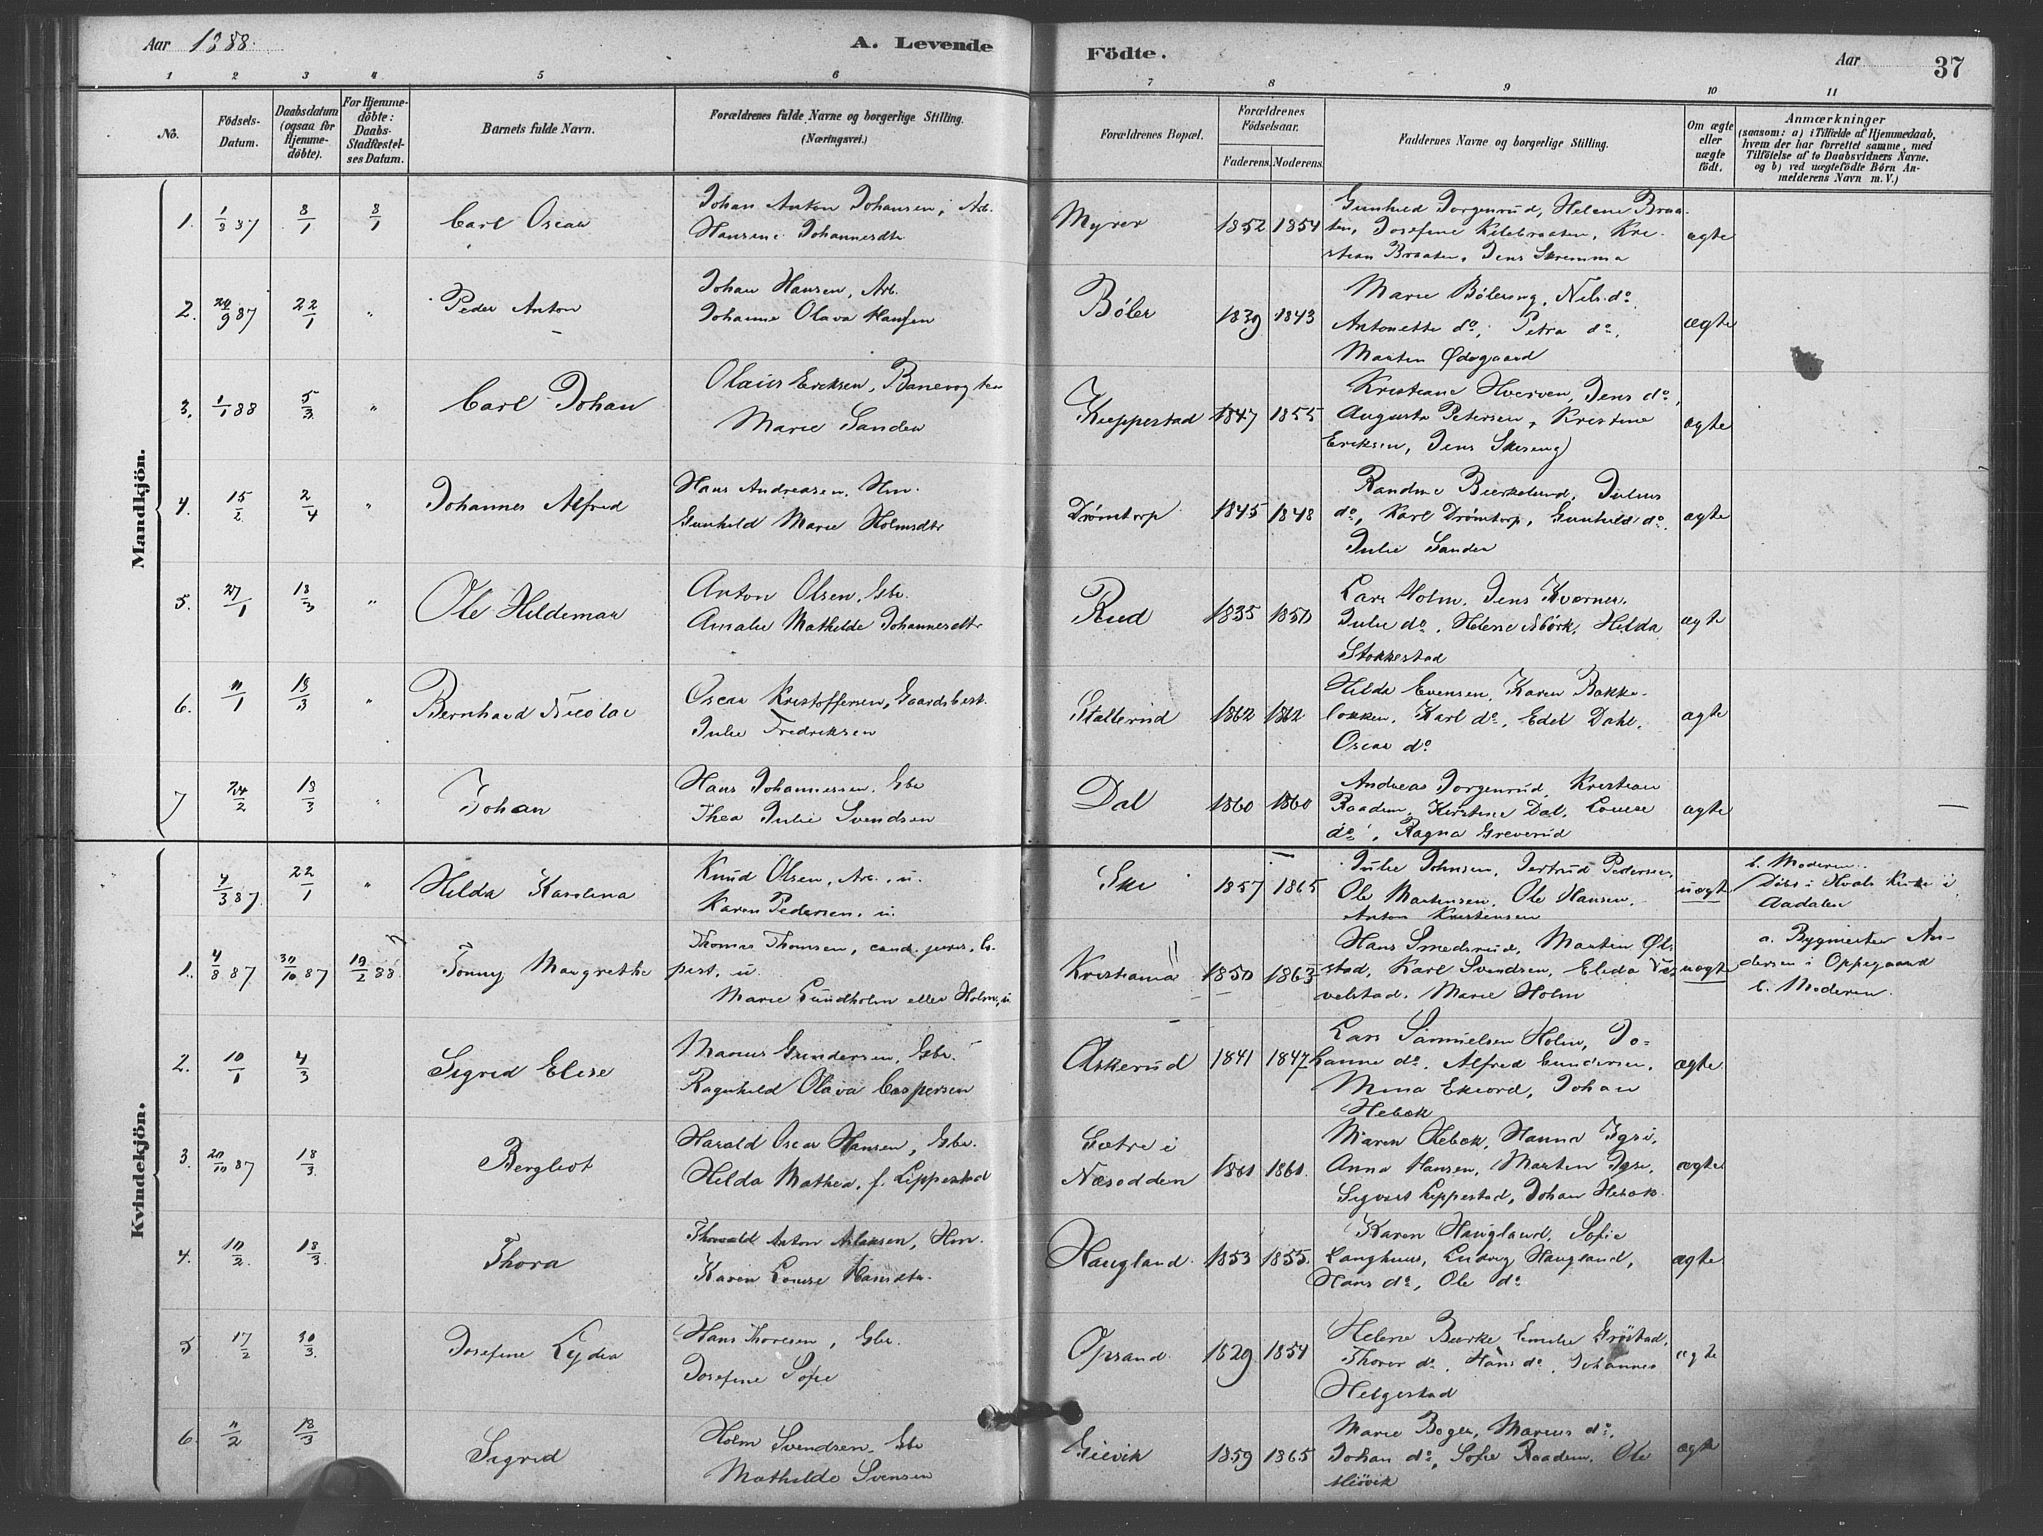 Aar 1888. A. Levende Födte. Aar 37
1 2 3 4 5 6 7 8 9 10 11
No.
Födsels-Datum.
Daabsdatum (ogsaa for Hjemme-döbte).
For Hjemme-döbte: Daabs-Stadfæstel-ses Datum.
Barnets fulde Navn.
Forældrenes fulde Navne og borgerlige Stilling.
(Næringsvei.)
Forældrenes Bopæl.
Forældrenes Födselsaar.
Faderens. Moderens.
Faddernes Navne og borgerlige Stilling.
Om ægte eller uægte födt.
Anmærkninger
(saasom: a) i Tilfælde af Hjemmedaab,
hvem der har forrettet samme, med
Tilföielse af to Daabsvidners Navne.
og b) ved uægtefödte Börn An-
melderens Navn m. V.)
Mandkjön.
1. 1/8 87 8/1 8/1 Carl Oscar
Johan Anton Johansen, Arb.
Hansine Johannesdtr
Myrer 1852 1854
Gunhild Jorgenrud, Helene Braa-
ten, Josefine Kilebraaten, Kri-
stian Braaten, Jens Skremma
ægte
2. 24/9 87 22/1 " Peder Anton
Johan Hansen, Arb.
Johanne Olava Hansen
Böler 1839 1843
Marie Böleseng, Nils do
Antonette do, Petra do,
Martin Ødegaard
ægte
3. 1/1 88 5/3 " Carl Johan
Olaus Eriksen, Banevogter
Marie Sander
Kieppestad 1847 1855
Kristiane Hverven, Jens do,
Augusta Petersen, Kristine
Eriksen, Jens Skiseng
ægte
4. 15/2 2/4 " Johannes Alfred
Hans Andreasen, Hm.
Gunhild Marie Holmsdtr
Drömtorp 1845 1848
Randine Bierkelund, Julius
do, Karl Drömtorp, Gunhild do,
Julie Sander
ægte
5. 27/1 18/3 " Ole Hildemar
Anton Olsen, Gbr.
Amalie Mathilde Johannesdtr
Rud 1835 1850
Lars Holm, Jens Kverner,
Julie do, Helene Mörk, Hilda
Stokkestad
ægte
6. 11/1 18/3 " Bernhard Nicolai
Oscar Kristoffersen, Gaardsbest.
Julie Fredriksen
Stallerud 1862 1862
Hilda Evensen, Karen Bakke-
lokken, Karl do, Edel Dahl,
Oscar do
ægte
7 24/2 18/3 " Johan
Hans Johannessen, Gbr
Thea Julie Svendsen
Dal 1860 1860
Andreas Jorgenrud, Kristian
Raaden, Kirstine Dal, Louise
do, Ragna Greverud
ægte —
Kvindekjön.
4/3 87. 22/1 " Hilda Karolina
Knud Olsen, Arb., u.
Karen Pedersen, u.
Ski 1857 1865
Julie Johnsen, Jertrud Pedersen,
Ole Martinsen, Ole Hansen,
Anton Kristensen
uægte
b. Moderen.
Döbt i Hvals Kirke i
Aadalen
1. 4/8 87 30/10 87 19/2 88 Fonny Margrethe
Thomas Thomsen, cand. juris,
u.
Marie Lundholm eller Holm, u.
Kristiania 1850 1863
Hans Smedsrud, Martin Øl-
stad, Karl Svendsen, Elida
velstad, Marie Holm
uægte
a. Bygmester An-
dersen i Oppegaard
b. Moderen.
2. 10/1 4/3 Sigrid Elise
Marius Gundersen, Gbr.
Ragnhild Olava Caspersen
Askerud 1841 1847
Lars Samuelsen Holm, Jo-
hanne do, Alfred Gundersen,
Mina Ekiord, Johan
Hebæk
ægte
3. 20/10 87 18/3 Bergliot
Harald Oscar Hansen, Gbr.
Hilda Mathea, f. Lippestad
Sætre i
Næsodden 1861 1861
Maren Hebæk, Hanna Igsi,
Anna Hansen, Martin Igsi,
Sigvart Lippestad, Johan Hebæk
ægte
4. 10/2 18/3 Thora
Thorvald Anton Nilsksen, Hm.
Karen Louise Hansdtr.
Haugland 1853 1855
Karen Haugland, Sofie
Langhuus, Ludvig Haugland,
Hans do, Ole do
ægte
5 17/2 30/3 Josefine Lydia
Hans Thoresen, Gbr.
Josefine Sofie
Opsand 1829 1854
Helene Bærke, Emilie Gröstad,
Thorer do, Hans do, Johannes
Helgestad
ægte
6. 11/2 18/3 Sigrid
Holm Svendsen, Gbr
Mathilde Svensen
Gievik 1859 1865
Marie Boger, Marius do,
Johan do, Sofie Raaden, Ole
Miövik
ægte